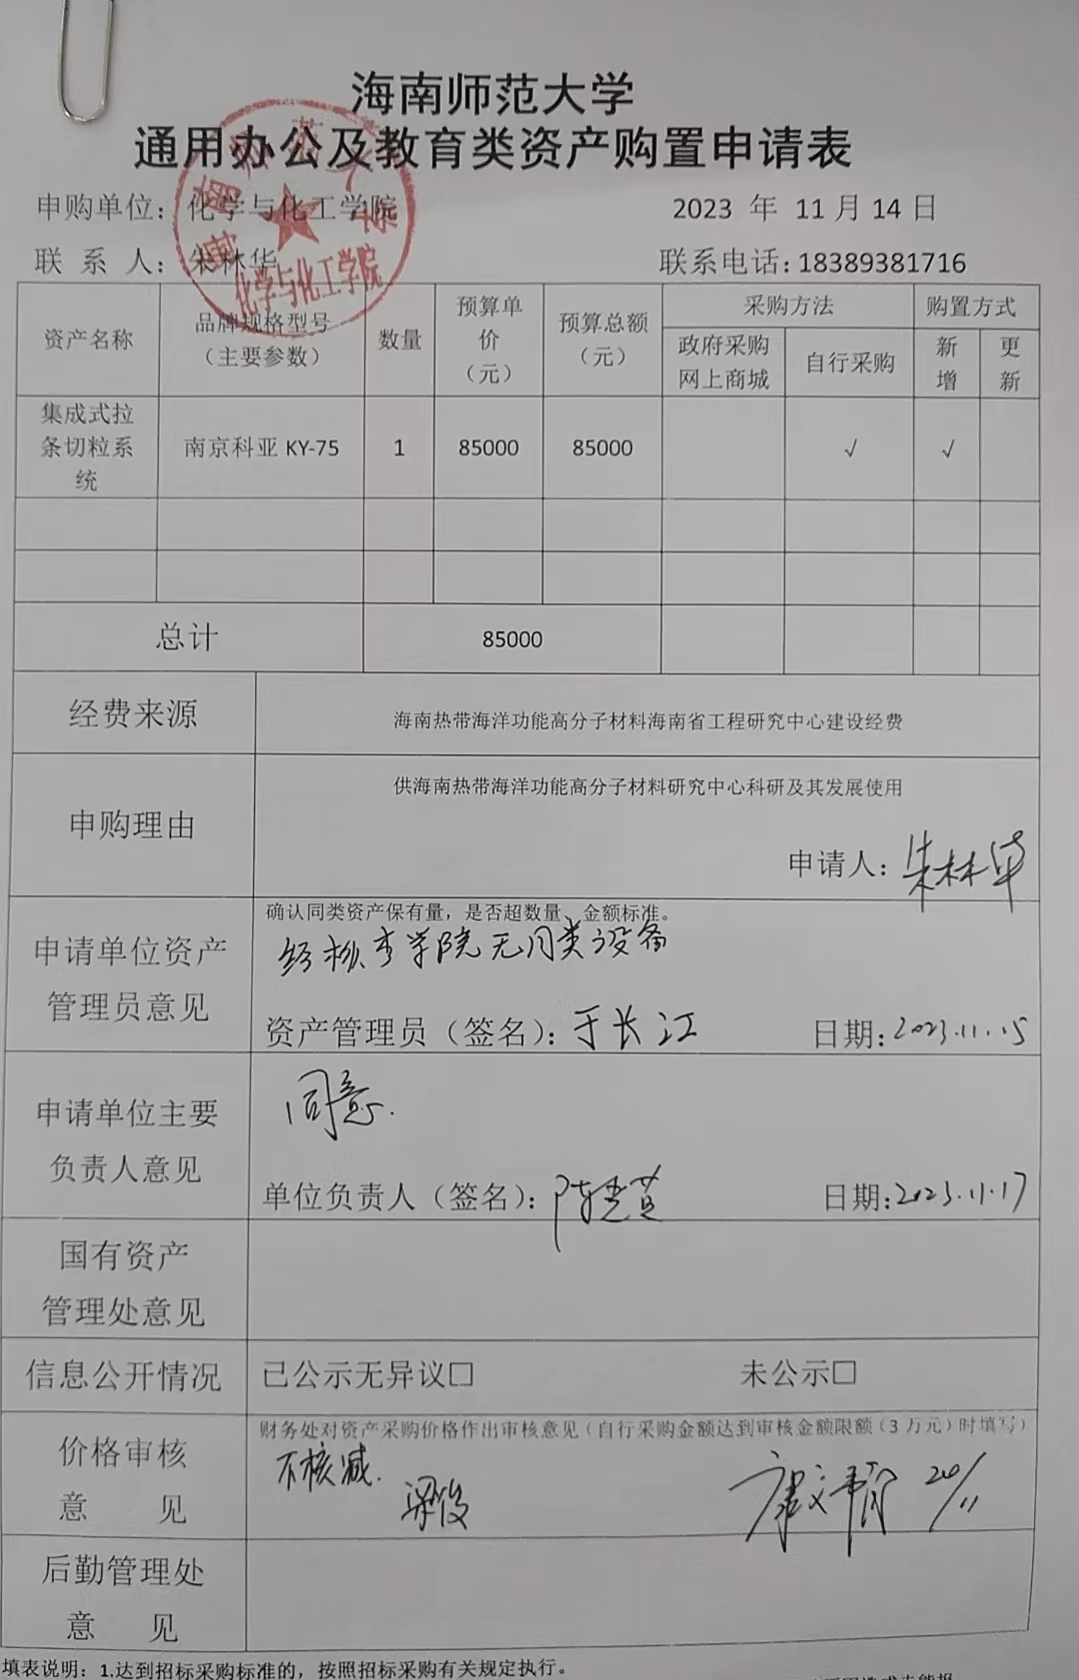 海南师范大学
通用办公及教育类资产购置申请表
申购单位：化学与化工学院
2023 年 11 月 14 日
联 系 人：朱林华
联系电话：18389381716
海南师范大学
化学与化工学院
资产名称
品牌规格型号
（主要参数）
数量
预算单
价
（元）
预算总额
（元）
采购方法
购置方式
政府采购
网上商城
自行采购
新
增
更
新
集成式拉
条切粒系
统
南京科亚 KY-75
1
85000
85000
√
√
总计
85000
经费来源
海南热带海洋功能高分子材料海南省工程研究中心建设经费
申购理由
供海南热带海洋功能高分子材料研究中心科研及其发展使用
申请人：朱林华
申请单位资产
管理员意见
确认同类资产保有量，是否超数量、金额标准。
经核查学院无同类设备
资产管理员（签名）：于长江
日期：2023.11.15
申请单位主要
负责人意见
同意.
单位负责人（签名）：
日期：2023.11.17
国有资产
管理处意见
信息公开情况
已公示无异议□
未公示□
价格审核
意 见
财务处对资产采购价格作出审核意见（自行采购金额达到审核金额限额（3 万元）时填写）
不核减.
梁俊
20/11
后勤管理处
意 见
填表说明：1.达到招标采购标准的，按照招标采购有关规定执行。